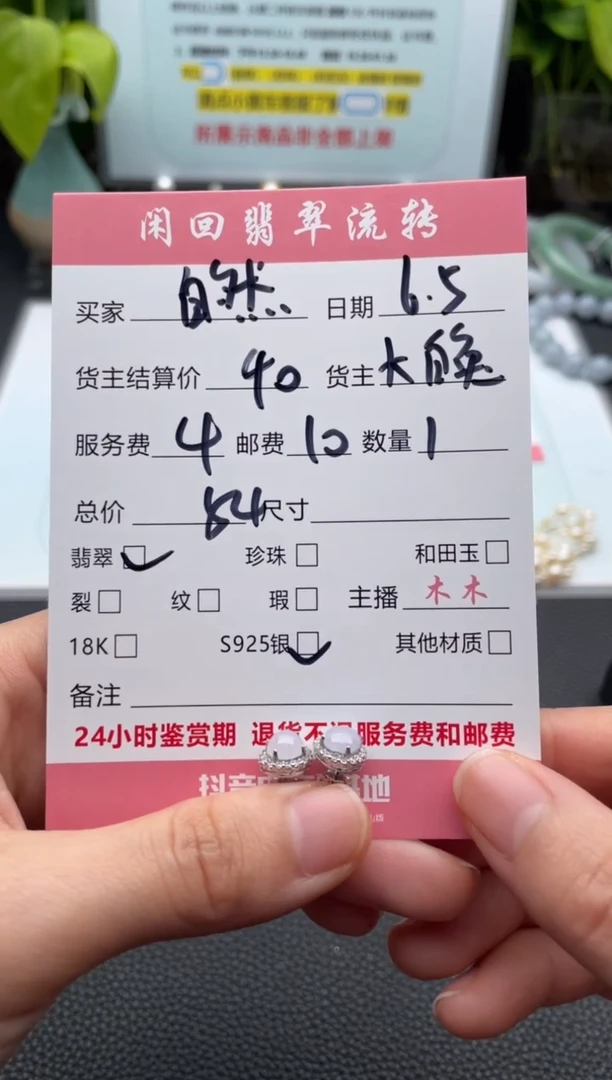 所展示商品非全部上架
闲回翡翠流转
买家 自然... 日期 6.5
货主结算价 40 货主 大白兔
服务费 4 邮费 10 数量 1
总价 54 尺寸
翡翠 珍珠 和田玉
裂 纹 瑕 主播 木木
18K S925银 其他材质
备注
24小时鉴赏期 退货不退服务费和邮费
抖音 基地